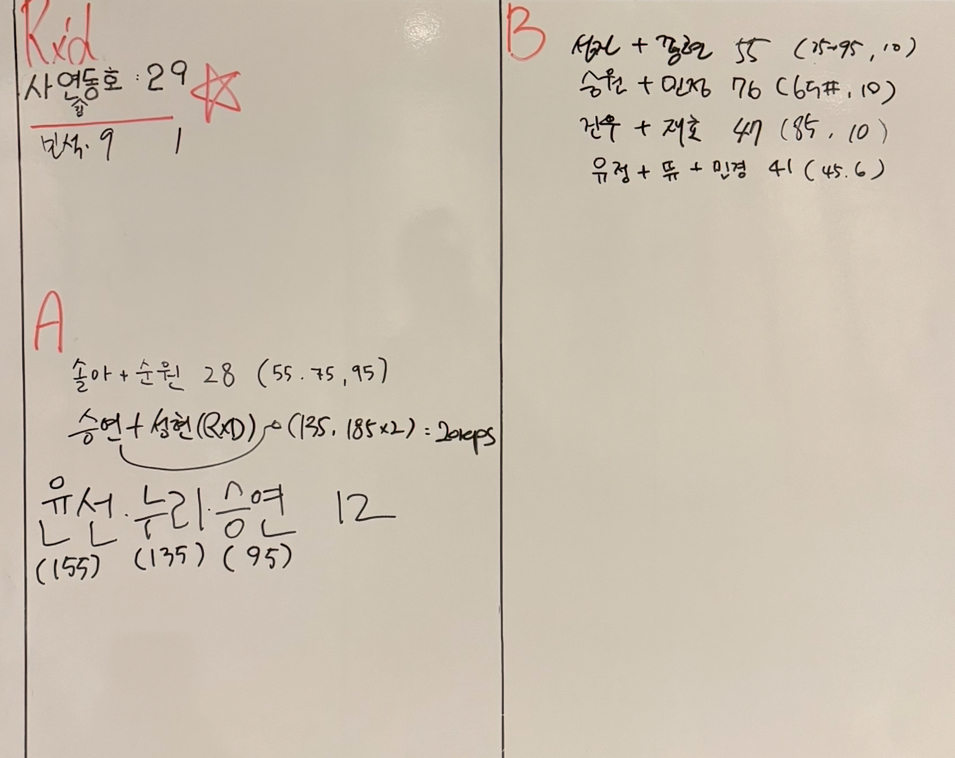 Rx'd
사연동호 : 29
힙
민석. 9 1
A
솔아 + 순원 28 (55. 75, 95)
승연 + 성현(RxD) (135, 185x2) : 20reps
윤선. 누리. 승연 12
(155) (135) (95)
B
+ 55 (75~95, 10)
승원 + 민정 76 (65#, 10)
건우 + 재호 47 (85, 10)
유정 + 뜌 + 민경 41 (45. 6)